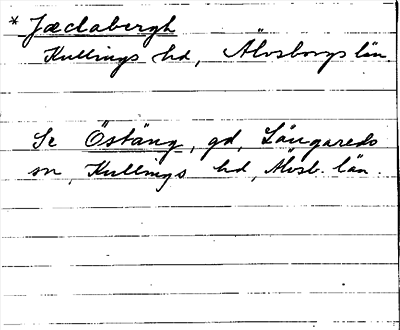 * Jædabergh
Kullings hd, Älvsborgs län
Se Östäng, gd, Långareds
sn, Kullings hd, Älvsb. län.